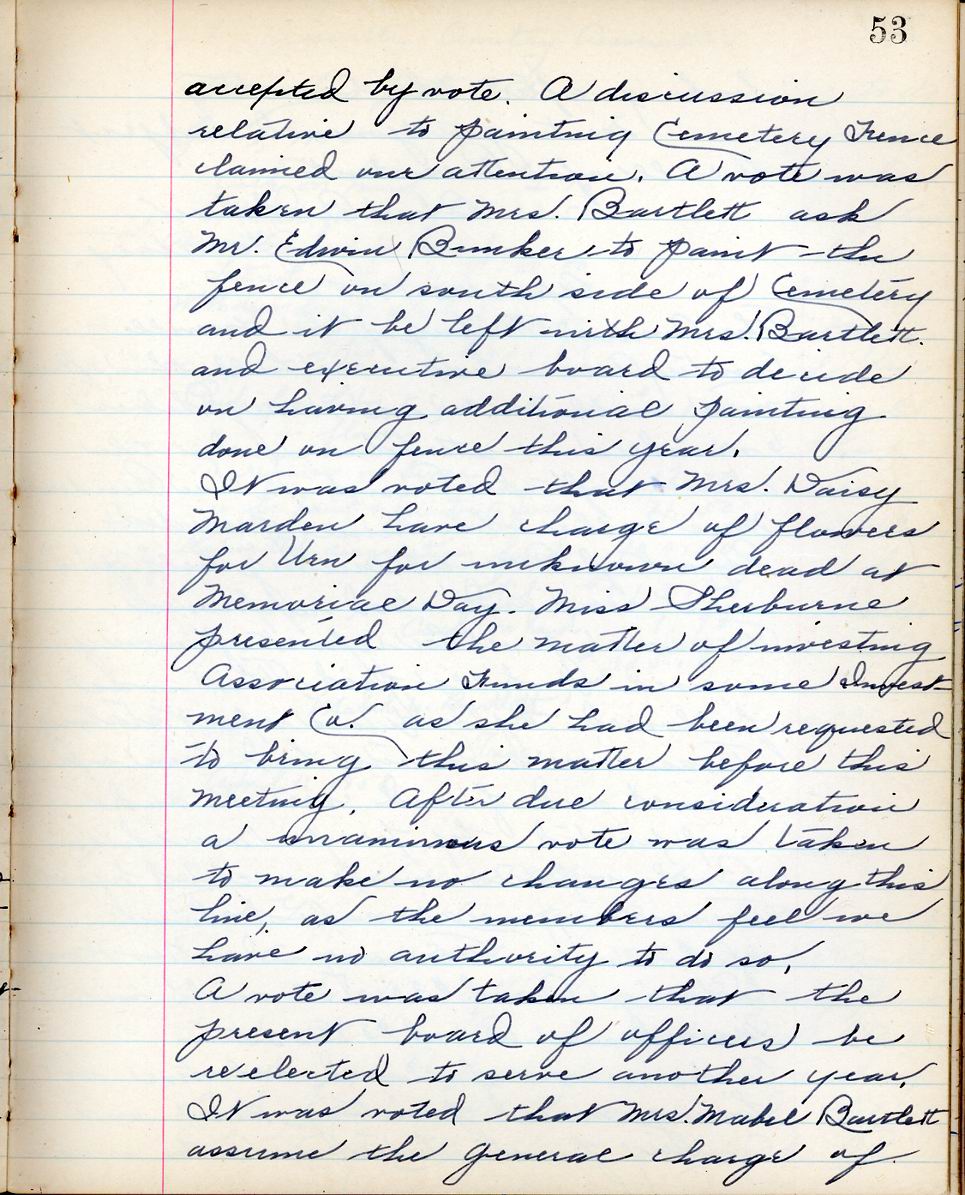 53
accepted by vote. A discussion
relative to painting Cemetery Fence
claimed our attention. A vote was
taken that Mrs. Bartlett ask
Mr. Edwin Bunker to paint the
fence on south side of Cemetery
and it be left with Mrs. Bartlett.
and executive board to decide
on having additional painting
done on fence this year.
It was voted that Mrs. Daisy
Marden have charge of flowers
for Urn for unknown dead at
Memorial Day. Miss Sherburne
presented the matter of investing
Association Funds in some Invest-
ment Co. as she had been requested
to bring this matter before this
meeting. After due consideration
a unanimous vote was taken
to make no changes along this
line, as the members feel we
have no authority to do so.
A vote was taken that the
present board of officers be
reelected to serve another year.
It was voted that Mrs. Mabel Bartlett
assume the general charge of